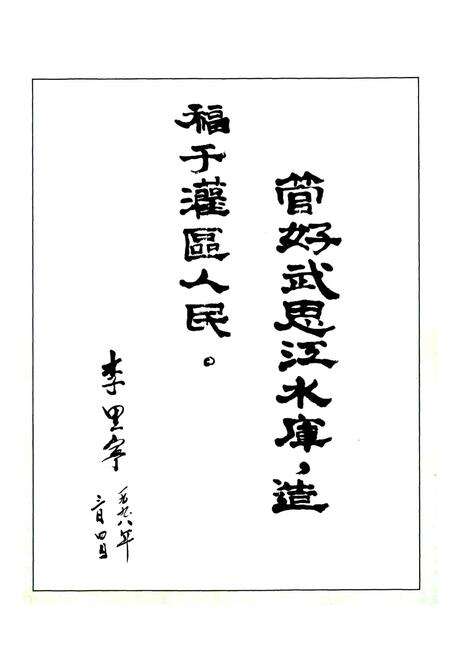 管好武思江水庫，造
福于灌區人民。
李里宁
一九九八年
三月四日